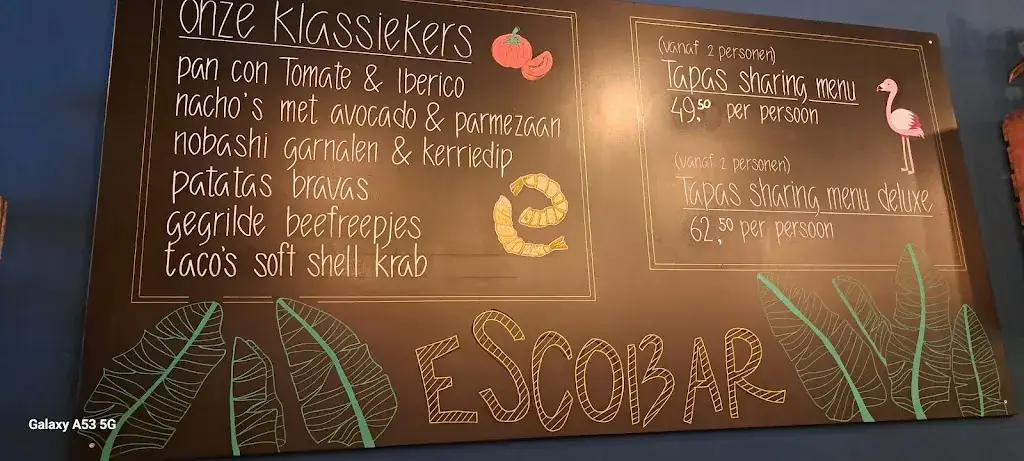 onze klassiekers
pan con Tomate & Iberico
nacho's met avocado & parmezaan
nobashi garnalen & kerriedip
patatas bravas
gegrilde beefreepjes
taco's soft shell krab
(vanaf 2 personen)
Tapas sharing menu
49,50 per persoon
(vanaf 2 personen)
Tapas sharing menu deluxe
62,50 per persoon
ESCOBAR
Galaxy A53 5G